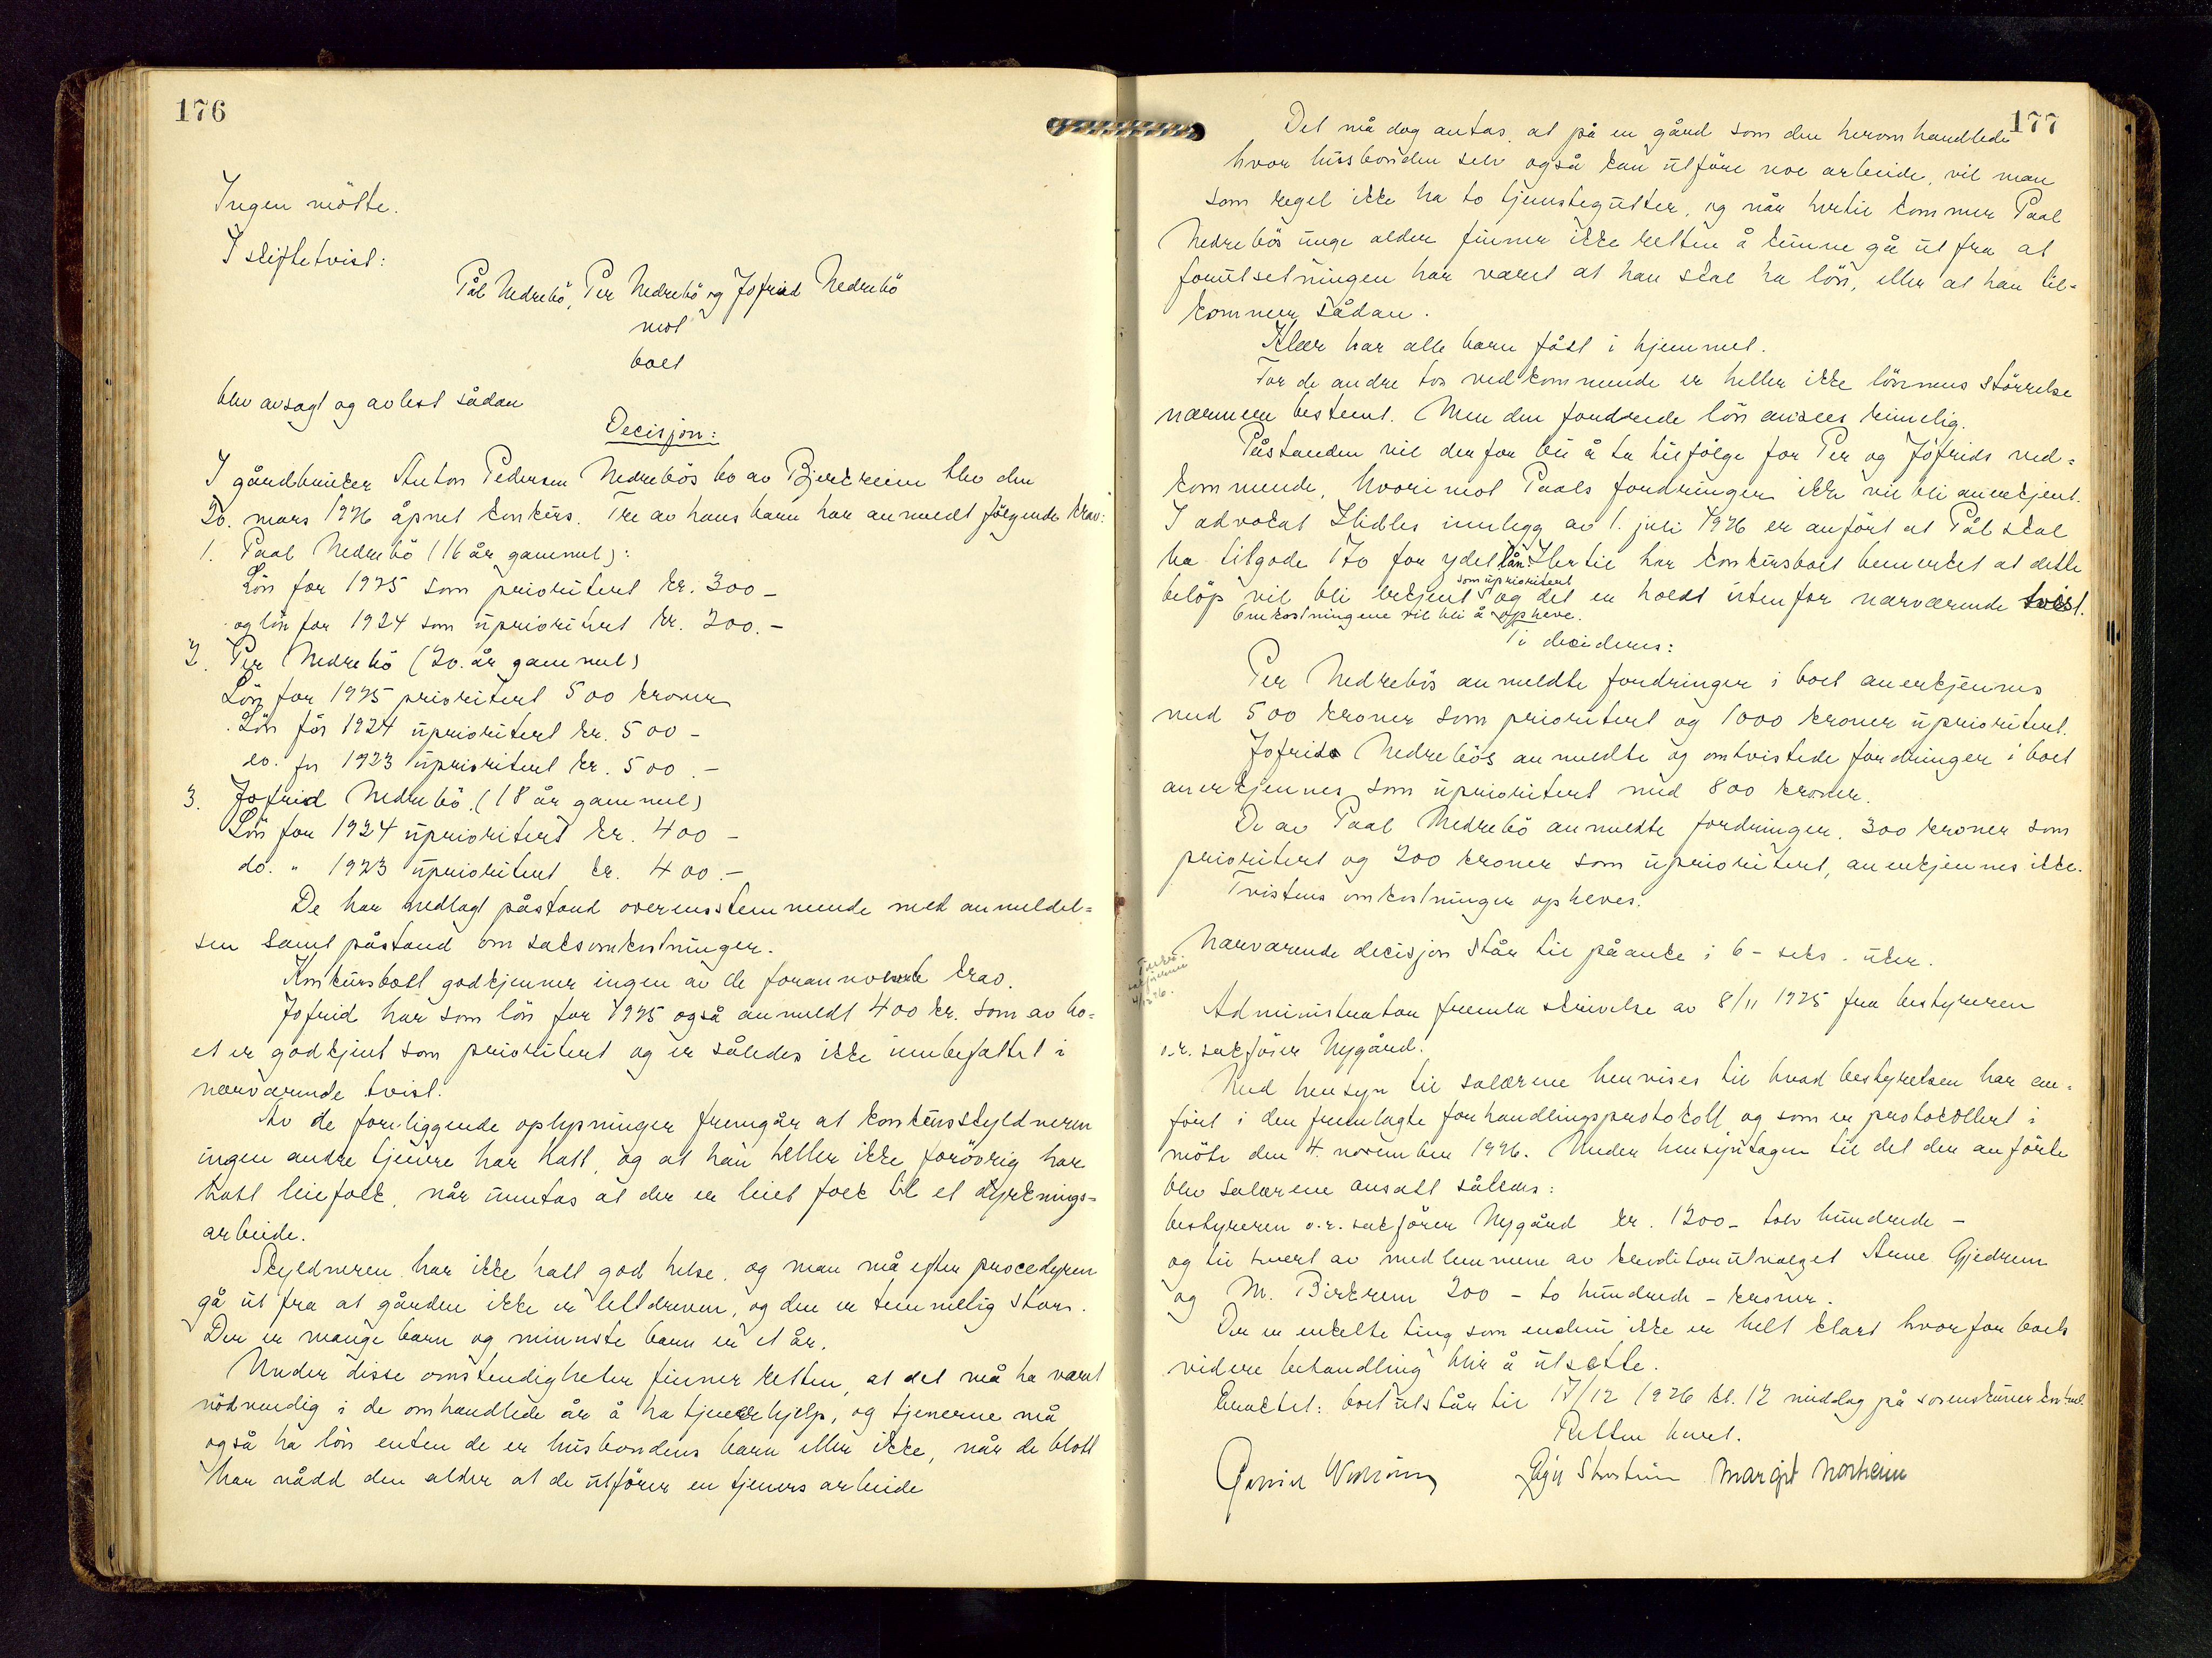 176
Ingen mötte.
I skiftetvist:
Pål Nedrebö, Per Nedrebö og Jofrid Nedrebö
mot
boet
blev avsagt og avlest sådan
Decisjon:
I gårdbruker Anton Pedersen Nedrebös bo av Bjerkreim blev den
20. mars 1926 åpnet konkurs. Tre av hans barn har anmeldt følgende krav:
1. Paal Nedrebö (16 år gammel):
Lön for 1925 som prioritert kr. 300 -
og lön for 1924 som uprioritert kr. 200.-
2. Per Nedrebö (20. år gammel)
Lön for 1925 prioritert 500 kroner
Lön for 1924 uprioritert kr. 500 -
do. for 1923 uprioritert kr. 500.-
3. Jofrid Nedrebö (18 år gammel)
Lön for 1924 uprioritert kr. 400 -
do. " 1923 uprioritert kr. 400.-
De har nedlagt påstand overensstemmende med anmeldel=
sen samt påstand om saksomkostninger.
Konkursboet godkjenner ingen av de forannevnte krav.
Jofrid har som lön for 1925 også anmeldt 400 kr. som av bo=
et er godkjent som prioritert og er således ikke innbefattet i
nærværende tvist.
Av de foreliggende oplysninger fremgår at konkursskyldneren
ingen andre tjenere har hatt, og at han heller ikke forövrig har
hatt leiefolk, når unntas at der er leiet folk til et dyrknings=
arbeide.
Skyldneren har ikke hatt god helse, og man må efter proceduren
gå ut fra at gården ikke er lettdreven, og den er temmelig stor.
Der er mange barn og minnste barn er et år.
Under disse omstendigheter finner retten, at det må ha vært
nödvendig i de omhandlede år å ha tjenerhjelp, og tjenerne må
også ha lön enten de er husbondens barn eller ikke, når de blott
har nådd den alder at de utförer en tjeners arbeide
177
Det må dog antas, at på en gård som den heromhandlede
hvor husbonden selv også kan utföre noe arbeide, vil man
som regel ikke ha to tjenstegutter, og når hertil kommer Paal
Nedrebös unge alder finner ikke retten å kunne gå ut fra at
forutsetningen har været at han skal ha lön, eller at han til=
kommer sådan.
Klær har alle barn fått i hjemmet.
For de andre tos vedkommende er heller ikke lönnens störrelse
nærmere bestemt. Men den fordrede lön ansees rimelig.
Påstanden vil derfor bli å ta tilfölge for Per og Jofrids ved=
kommende, hvorimot Paals fordringer ikke vil bli anerkjent.
I advokat innlegg av 1. juli 1926 er anfört at Pål skal
ha tilgode 170 for ydet lån. Hertil har konkursboet bemerket at dette
belöp vil bli erkjent som uprioritert og det er holdt utenfor nærværende tvist.
Omkostningene vil bli å opheve.
Ti decideres:
Per Nedrebös anmeldte fordringer i boet anerkjennes
med 500 kroner som prioritert og 1000 kroner uprioritert.
Jofrids Nedrebös anmeldte og omtvistede fordringer i boet
anerkjennes som uprioritert med 800 kroner.
De av Paal Nedrebö anmeldte fordringer, 300 kroner som
prioritert og 200 kroner som uprioritert, anerkjennes ikke.
Tvistens omkostninger opheves.
Nærværende decisjon står til påanke i 6 - seks - uker.
Administrator fremla skrivelse av 8/11 1925 fra bestyreren
o.r. sakförer Nygård.
Med hensyn til salærene henvises til hvad bestyrelsen har an=
fört i den fremlagte forhandlingsprotokoll og som er protokollert i
möte den 4. november 1926. Under hensyntagen til det der anförte
blev salærene ansatt således:
bestyreren o.r. sakförer Nygård kr. 1200 - tolv hundrede -
og til hvert av medlemmene av kreditorutvalget Arne Gjedrem
og M. Birkrem 200 - to hundrede - kroner.
Der er enkelte ting som endnu ikke er helt klart hvorfor boets
videre behandling blir å utsette.
Eractet: boet utstår til 17/12 1926 kl. 12 middag på sorenskriverkontoret.
Retten hevet.
Margit Norheim